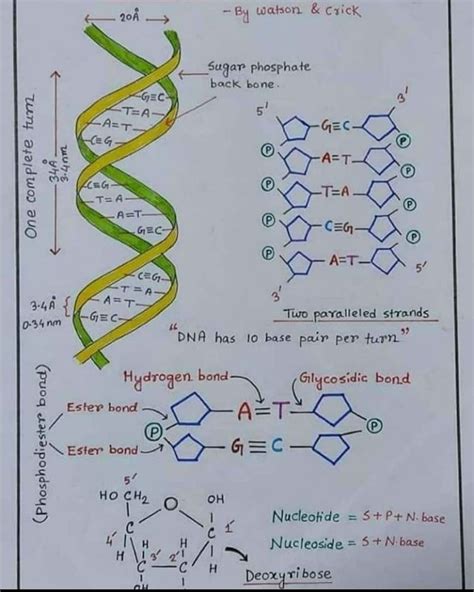 20Å
- By Watson & Crick
Sugar phosphate
back bone.
One complete turn
34Å
3.4nm
G≡C
T=A
A=T
C≡G
C≡G
T=A
A=T
G≡C
C≡G
T=A
A=T
G≡C
3.4Å
0.34nm
5'
3'
G≡C
P
P
A=T
P
P
T=A
P
P
C≡G
P
P
A=T
3'
5'
Two paralleled strands
"DNA has 10 base pair per turn"
(Phosphodiester bond)
Hydrogen bond
Glycosidic bond
Ester bond
A=T
P
P
Ester bond
G≡C
5'
HO CH₂
O
OH
C
C
4'
1'
H
H
H
H
3'
2'
C
C
H
Nucleotide = S+P+N.base
Nucleoside = S+N.base
Deoxyribose